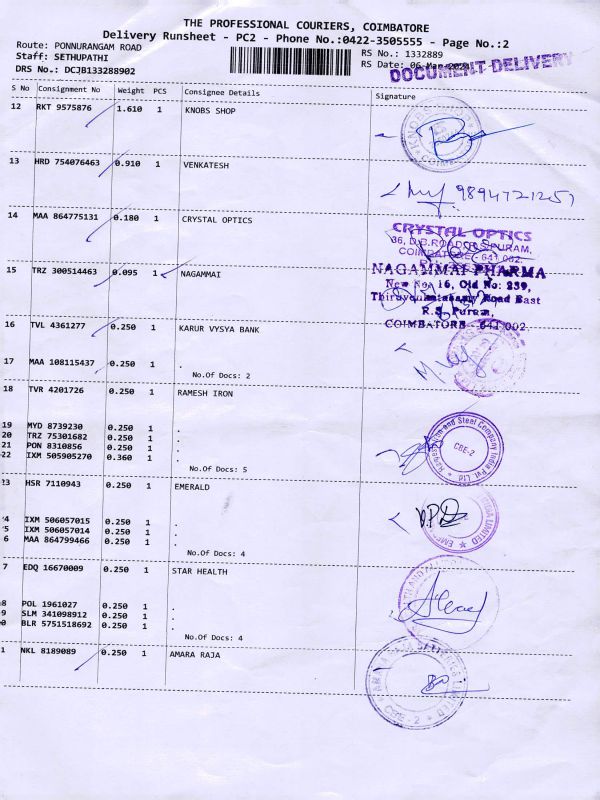 THE PROFESSIONAL COURIERS, COIMBATORE
Delivery Runsheet - PC2 - Phone No.:0422-3505555 - Page No.:2
Route: PONNURANGAM ROAD RS No.: 1332889
Staff: SETHUPATHI RS Date: 06-Mar-2024
DRS No.: DCJB133288902 DOCUMENT DELIVERY
S No Consignment No Weight PCS Consignee Details Signature
12 RKT 9575876 1.610 1 KNOBS SHOP
13 HRD 754076463 0.910 1 VENKATESH
14 MAA 864775131 0.180 1 CRYSTAL OPTICS
CRYSTAL OPTICS
36, D.B.ROAD, R.S.PURAM,
COIMBATORE - 641 002.
15 TRZ 300514463 0.095 1 NAGAMMAI
NAGAMMAI PHARMA
New No: 16, Old No: 239,
Road East
R.S. Puram,
COIMBATORE - 641 002
16 TVL 4361277 0.250 1 KARUR VYSYA BANK
17 MAA 108115437 0.250 1 .
No.Of Docs: 2
18 TVR 4201726 0.250 1 RAMESH IRON
19 MYD 8739230 0.250 1 .
20 TRZ 75301682 0.250 1 .
21 PON 8310856 0.250 1 .
22 IXM 505905270 0.360 1 .
No.Of Docs: 5
and Steel Company India Pvt. Ltd
CBE-2
23 HSR 7110943 0.250 1 EMERALD
4 IXM 506057015 0.250 1 .
5 IXM 506057014 0.250 1 .
6 MAA 864799466 0.250 1 .
No.Of Docs: 4
LIMITED
7 EDQ 16670009 0.250 1 STAR HEALTH
8 POL 1961027 0.250 1 .
9 SLM 341098912 0.250 1 .
0 BLR 5751518692 0.250 1 .
No.Of Docs: 4
1 NKL 8189089 0.250 1 AMARA RAJA
LIMITED
CBE-2